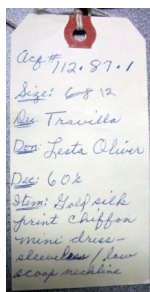 Acq # 712.87.1
Size: 6-8 12
Des: Travilla
Don: Lesta Oliver
Dec: 60's
Item: Gold silk
print chiffon
mini dress-
sleeveless / low
scoop neckline